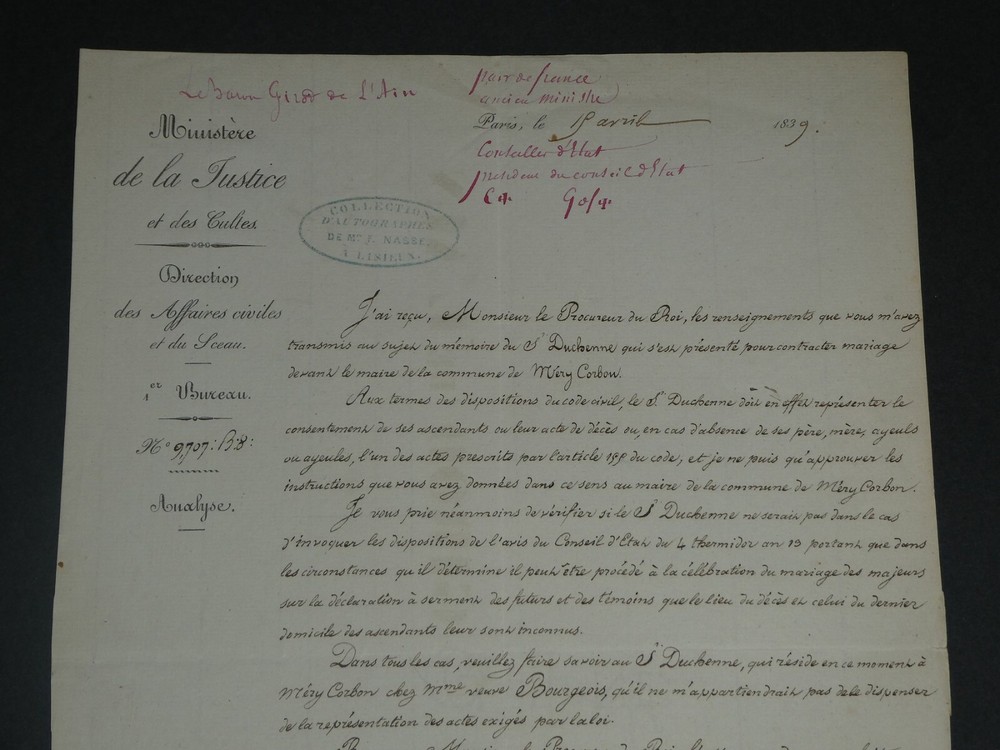 Le baron Girod de L'Ain
pair de france
ancien ministre
Ministère
de la Justice
et des Cultes.
Direction
des Affaires civiles
et du Sceau.
1er Bureau.
N° 9,707: B8:
Analyse.
Paris, le 15 avril 1839.
Conseiller d'Etat
président du conseil d'Etat
COLLECTION
D'AUTOGRAPHES
DE Mr J. NASSE
A LISIEUX.
J'ai reçu, Monsieur le Procureur du Roi, les renseignements que vous m'avez
transmis au sujet du mémoire du Sr Duchenne qui s'est présenté pour contracter mariage
devant le maire de la commune de Méry Corbon.
Aux termes des dispositions du code civil, le Sr Duchenne doit en effet représenter le
consentement de ses ascendants ou leur acte de décès ou, en cas d'absence de ses père, mère, ayeuls
ou ayeules, l'un des actes prescrits par l'article 155 du code, et je ne puis qu'approuver les
instructions que vous avez données dans ce sens au maire de la commune de Méry Corbon.
Je vous prie néanmoins de vérifier si le Sr Duchenne ne serait pas dans le cas
d'invoquer les dispositions de l'avis du Conseil d'Etat du 4 thermidor an 13 portant que dans
les circonstances qu'il détermine il peut être procédé à la célébration du mariage des majeurs
sur la déclaration à serment des futurs et des témoins que le lieu du décès et celui du dernier
domicile des ascendants leur sont inconnus.
Dans tous les cas, veuillez faire savoir au Sr Duchenne, qui réside en ce moment à
Méry Corbon chez Mme veuve Bourgeois, qu'il ne m'appartiendrait pas de le dispenser
de la représentation des actes exigés par la loi.